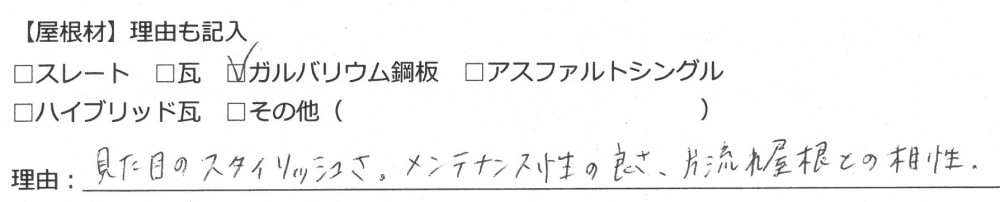 【屋根材】理由も記入
□スレート □瓦 ☑ガルバリウム鋼板 □アスファルトシングル
□ハイブリッド瓦 □その他（ ）
理由：見た目のスタイリッシュさ。メンテナンス性の良さ、片流れ屋根との相性。